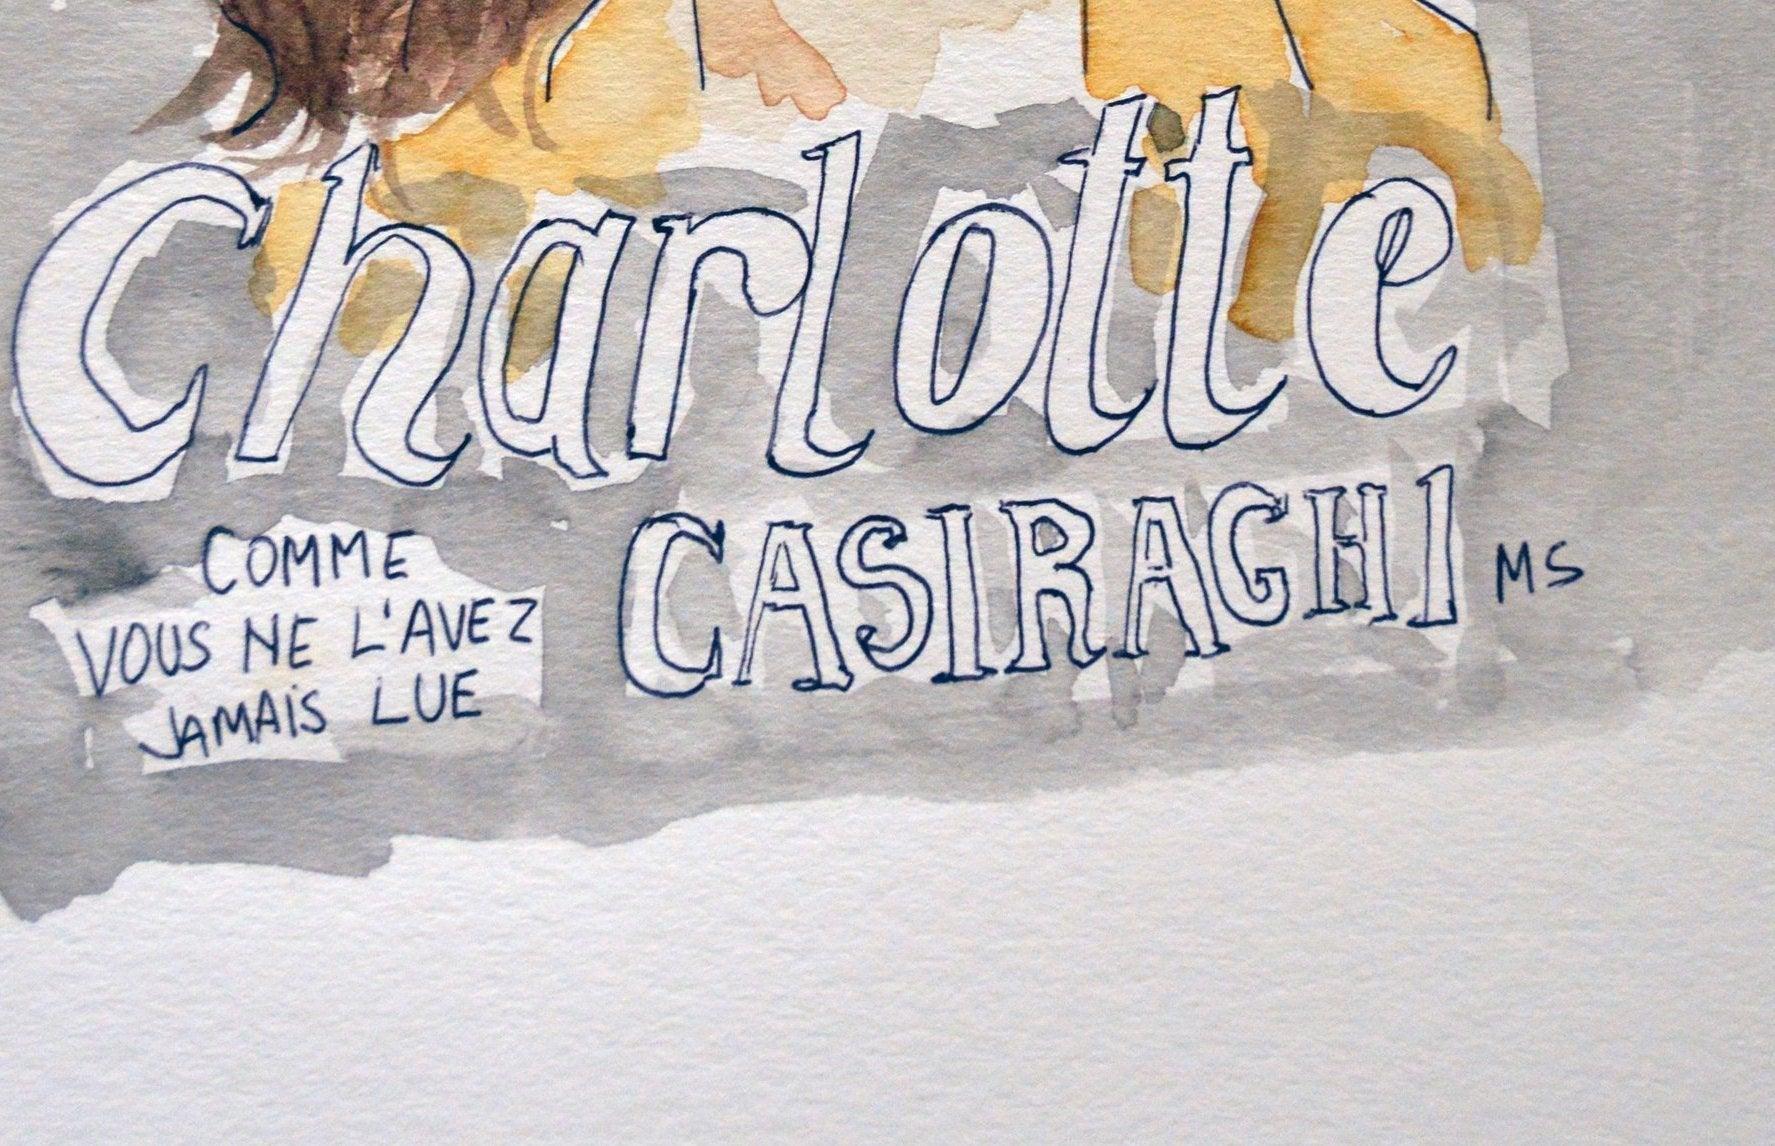 Charlotte
CASIRAGHI MS
COMME
VOUS NE L'AVEZ
JAMAIS LUE